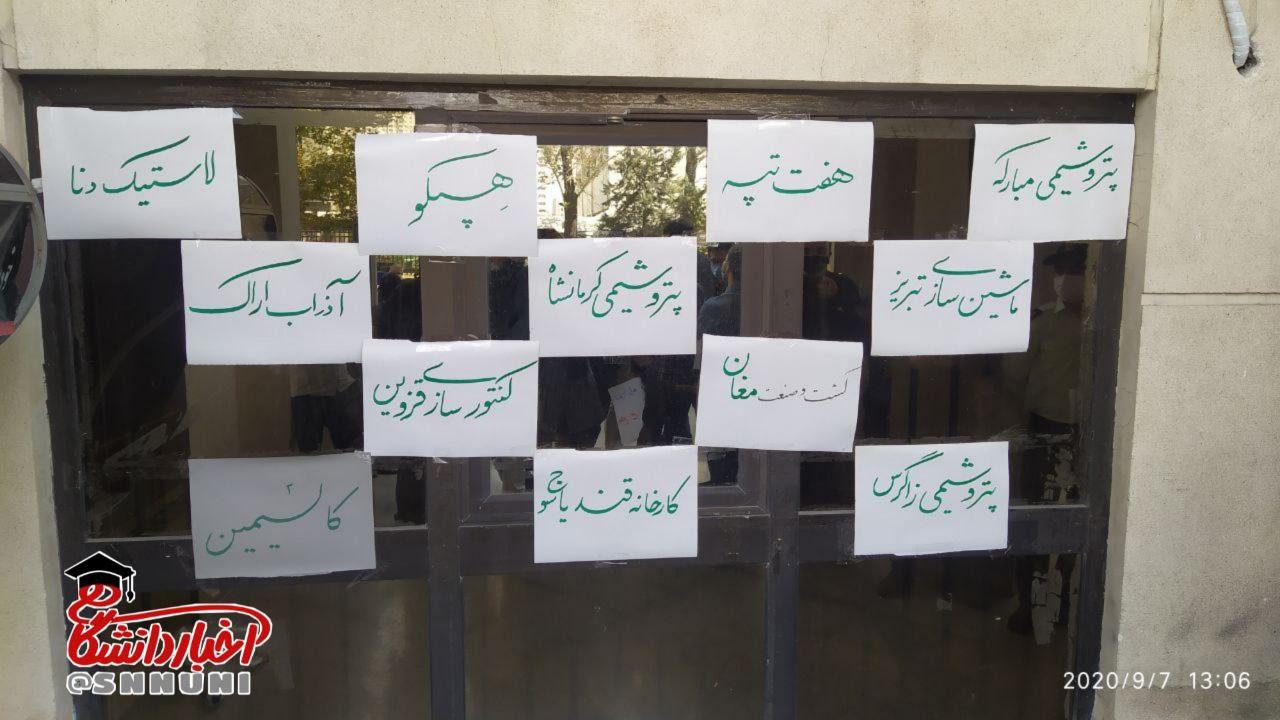 پتروشیمی مبارکه
هفت تپه
هپکو
لاستیک دنا
ماشین سازی تبریز
پتروشیمی کرمانشاه
آذراب اراک
کشت و صنعت مغان
کنتورسازی قزوین
پتروشیمی زاگرس
کارخانه قند یاسوج
کالسیمین
اخبار دانشگاه
@SNNUNI
2020/9/7 13:06